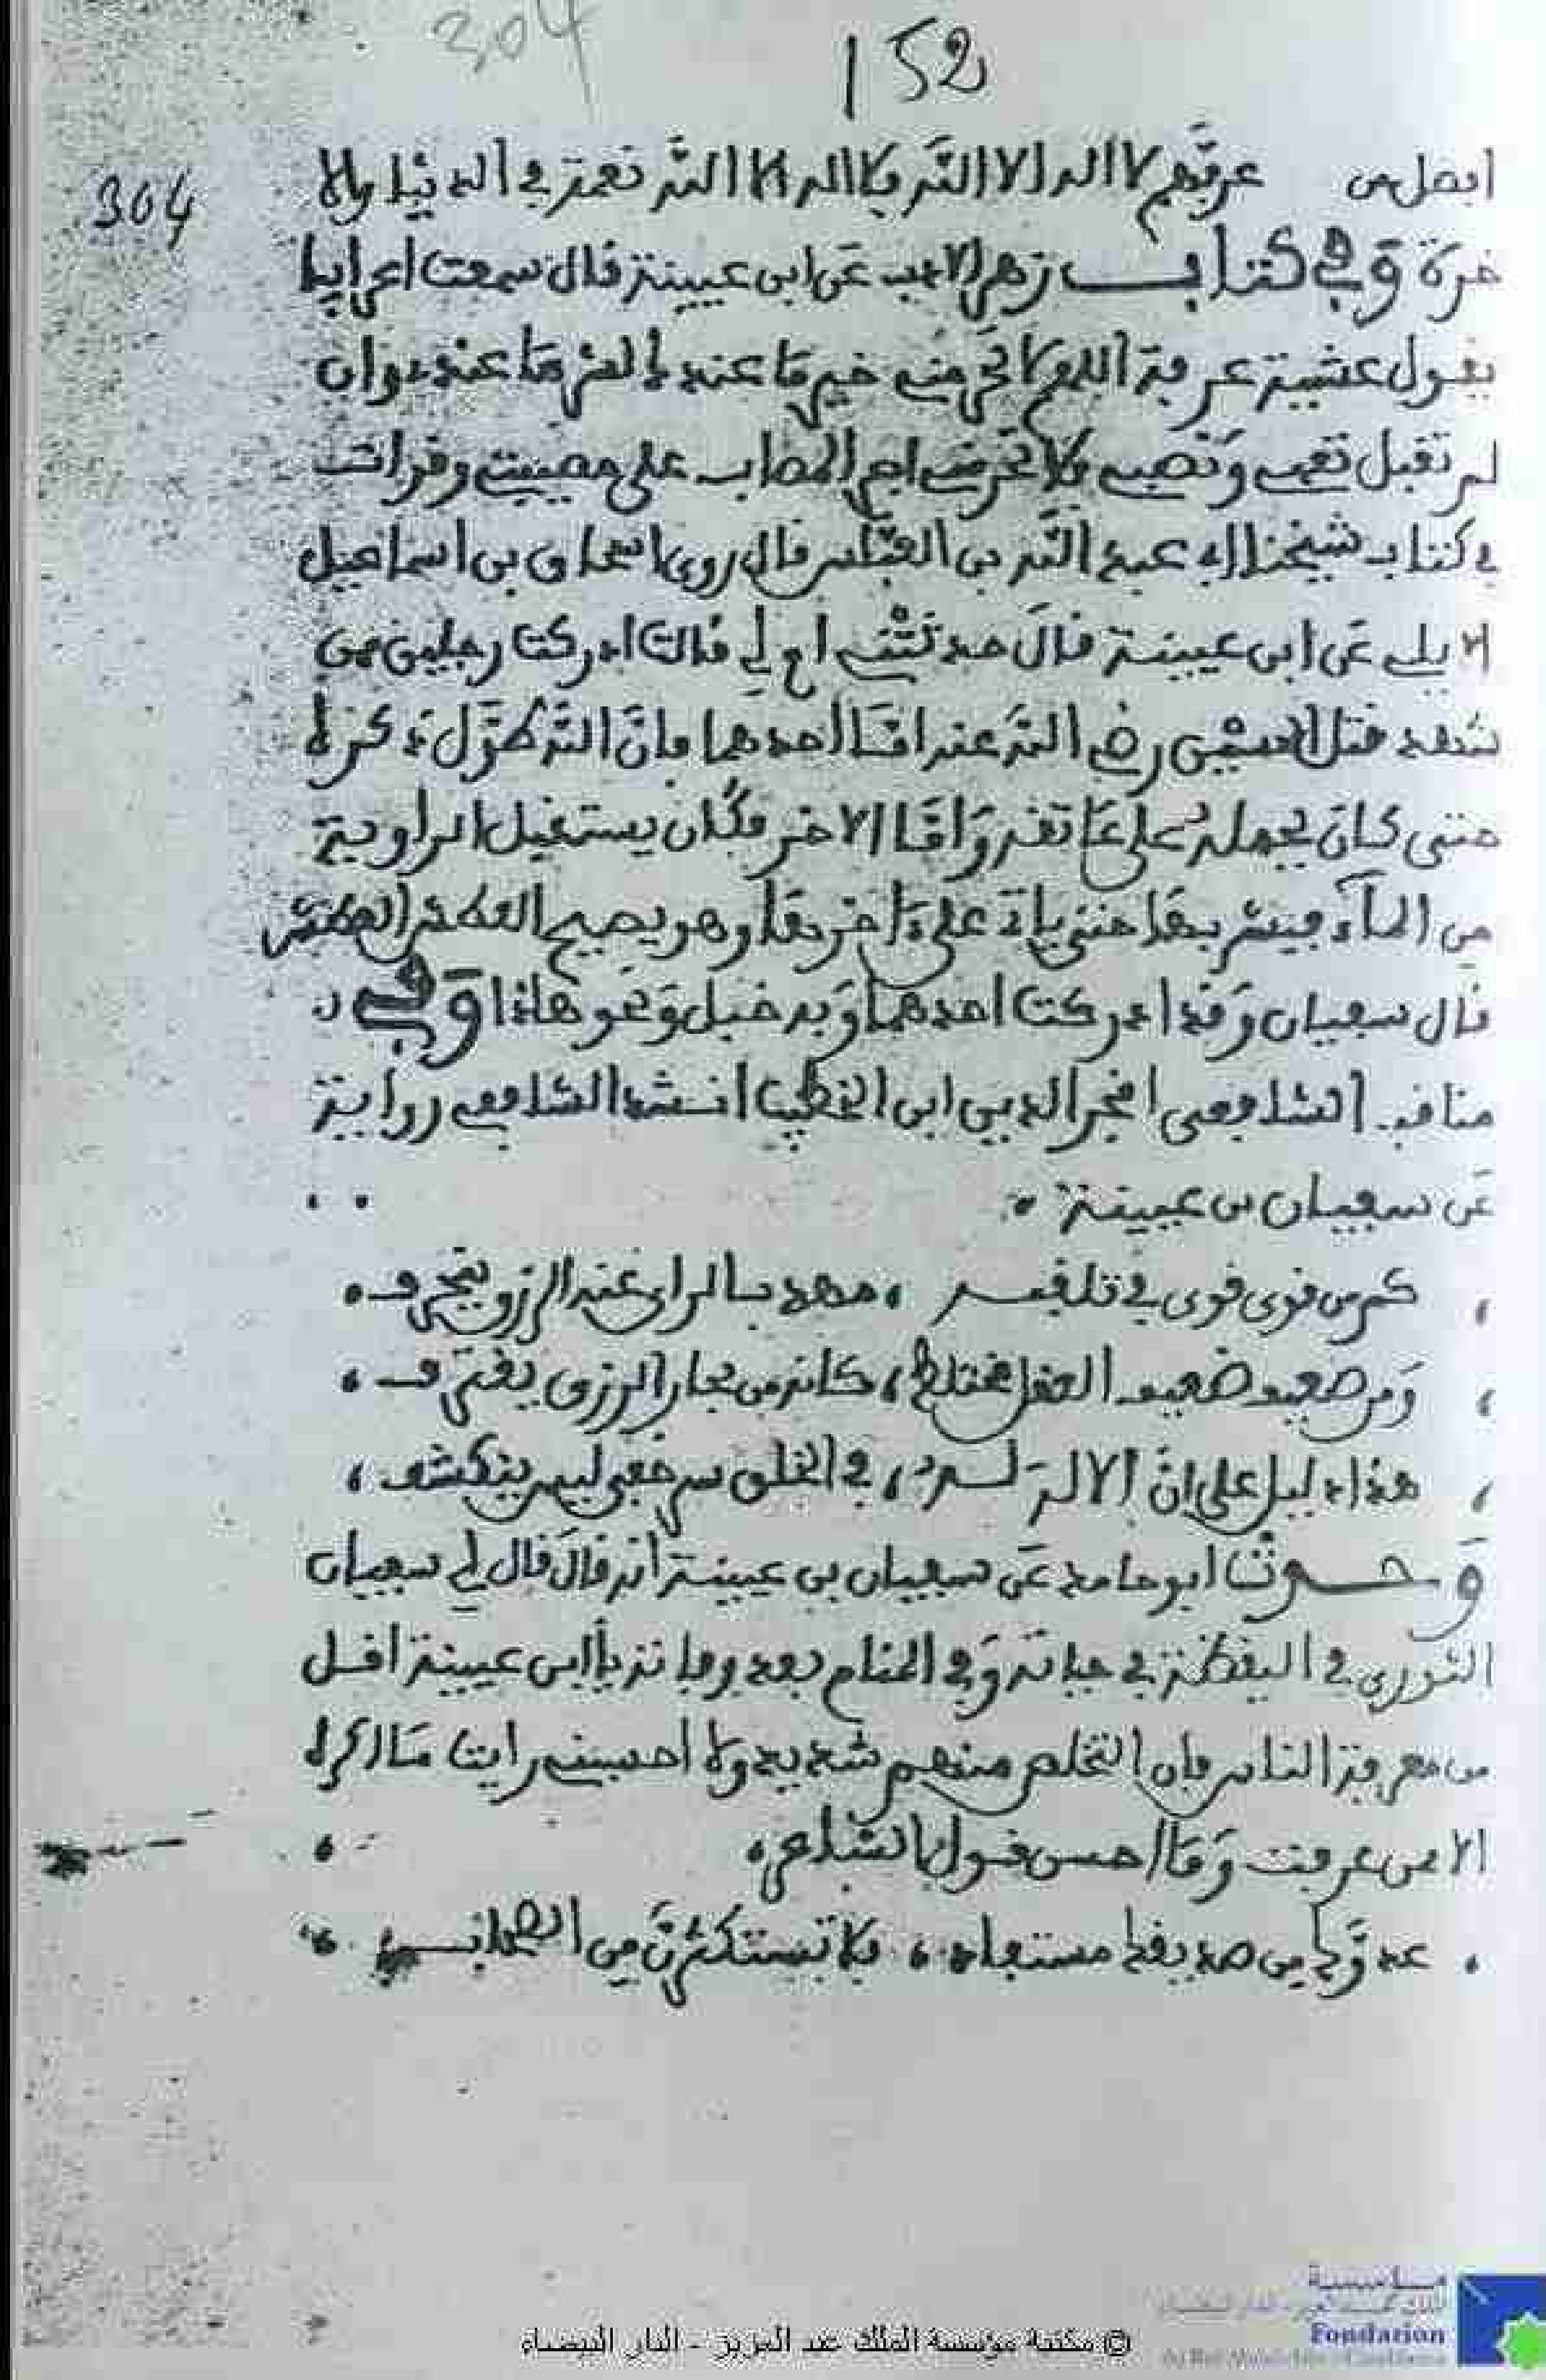 304
152
304
افضل من عرفهم لا اله الا الله فلا اله الا الله نعمة في الدنيا والا
خرة وفي كتاب زهر الاداب عن ابن عيينة قال سمعت اعرابيا
يقول عشية عرفة اللهم لا تحرمني خير ما عندك لشر ما عندي وان
لم تقبل تعبي ونصبي فلا تحرمني اجر المصاب على مصيبته وقرات
في كتاب شيخنا ابي عبد الله بن العباس قال روى اسحاق بن اسماعيل
الايلي عن ابن عيينة قال حدثتني ام لي قالت ادركت رجلين ممن
شهد قتل الحسين رضي الله عنه امّا احدهما فانّ الله طوّل ذكره
حتى كان يحمله على عاتقه وامّا الاخر فكان يستقبل الراوية
من الماء فيشربها حتى ياتي على ءاخرها وهو يصيح العطش العطش
قال سفيان وقد ادركت احدهما وبه خبل ونحو هاذا وفي
مناقب الشافعي لفخر الدين ابن الخطيب انشد الشافعي رواية
عن سفيان بن عيينة
كم من قوي قوي في تلقبه ، مهذب الراي عنه الرزق ينحرف
ومن ضعيف ضعيف العقل مختلط ، كانه من بحار الرزق يغترف
هذا دليل على انّ الاله له ، في الخلق سر خفي ليس ينكشف
وحدثنا ابو حامد عن سفيان بن عيينة انه قال قال لي سفيان
الثوري في اليقظة في حياته وفي المنام بعد وفاته يا ابن عيينة اقل
من معرفة الناس فان التخلص منهم شديد ولا احسبني رايت ما اكره
الا ممن عرفت وما احسن قول الشاعر
عدوّك من صديقك مستفاد ، فلا تستكثرنّ من الصحاب
© مكتبة مؤسسة الملك عبد العزيز - الدار البيضاء
مؤسسة
Fondation